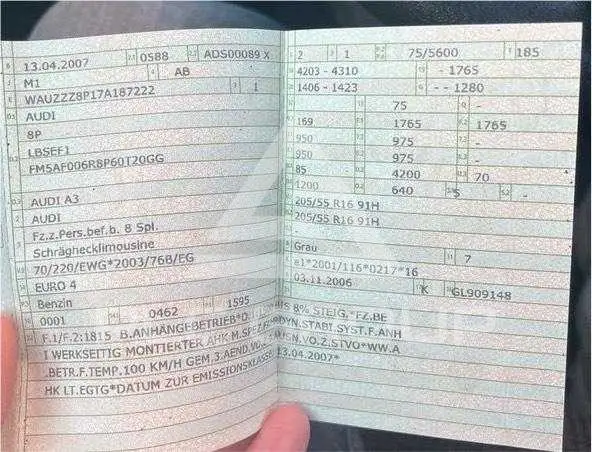 13.04.2007 0588 ADS00089 X
M1 AB
WAUZZZ8P17A187222 1
AUDI
8P
LBSEF1
FM5AF006R8P60T20GG
AUDI A3
AUDI
Fz.z.Pers.bef.b. 8 Spl.
Schräghecklimousine
70/220/EWG*2003/76B/EG
EURO 4
Benzin
0001 0462 1595
F.1/F.2:1815 B.ANHÄNGEBETRIEB*O.
I WERKSEITIG MONTIERTER AHK M.SPEZ.F
.BETR.F.TEMP.100 KM/H GEM.3.AEND.VO
HK LT.EGTG*DATUM ZUR EMISSIONSKLASSE
2 1 75/5600 185
4203 - 4310 - 1765
1406 - 1423 - - 1280
75 -
169 1765 1765
950 975 -
950 975 -
85 4200 70
1200 640 5 -
205/55 R16 91H
205/55 R16 91H
-
-
Grau 7
e1*2001/116*0217*16
03.11.2006 K GL909148
IS 8% STEIG.*FZ.BE
DYN.STABI.SYST.F.ANH
SN.VO.Z.STVO*WW.A
13.04.2007*